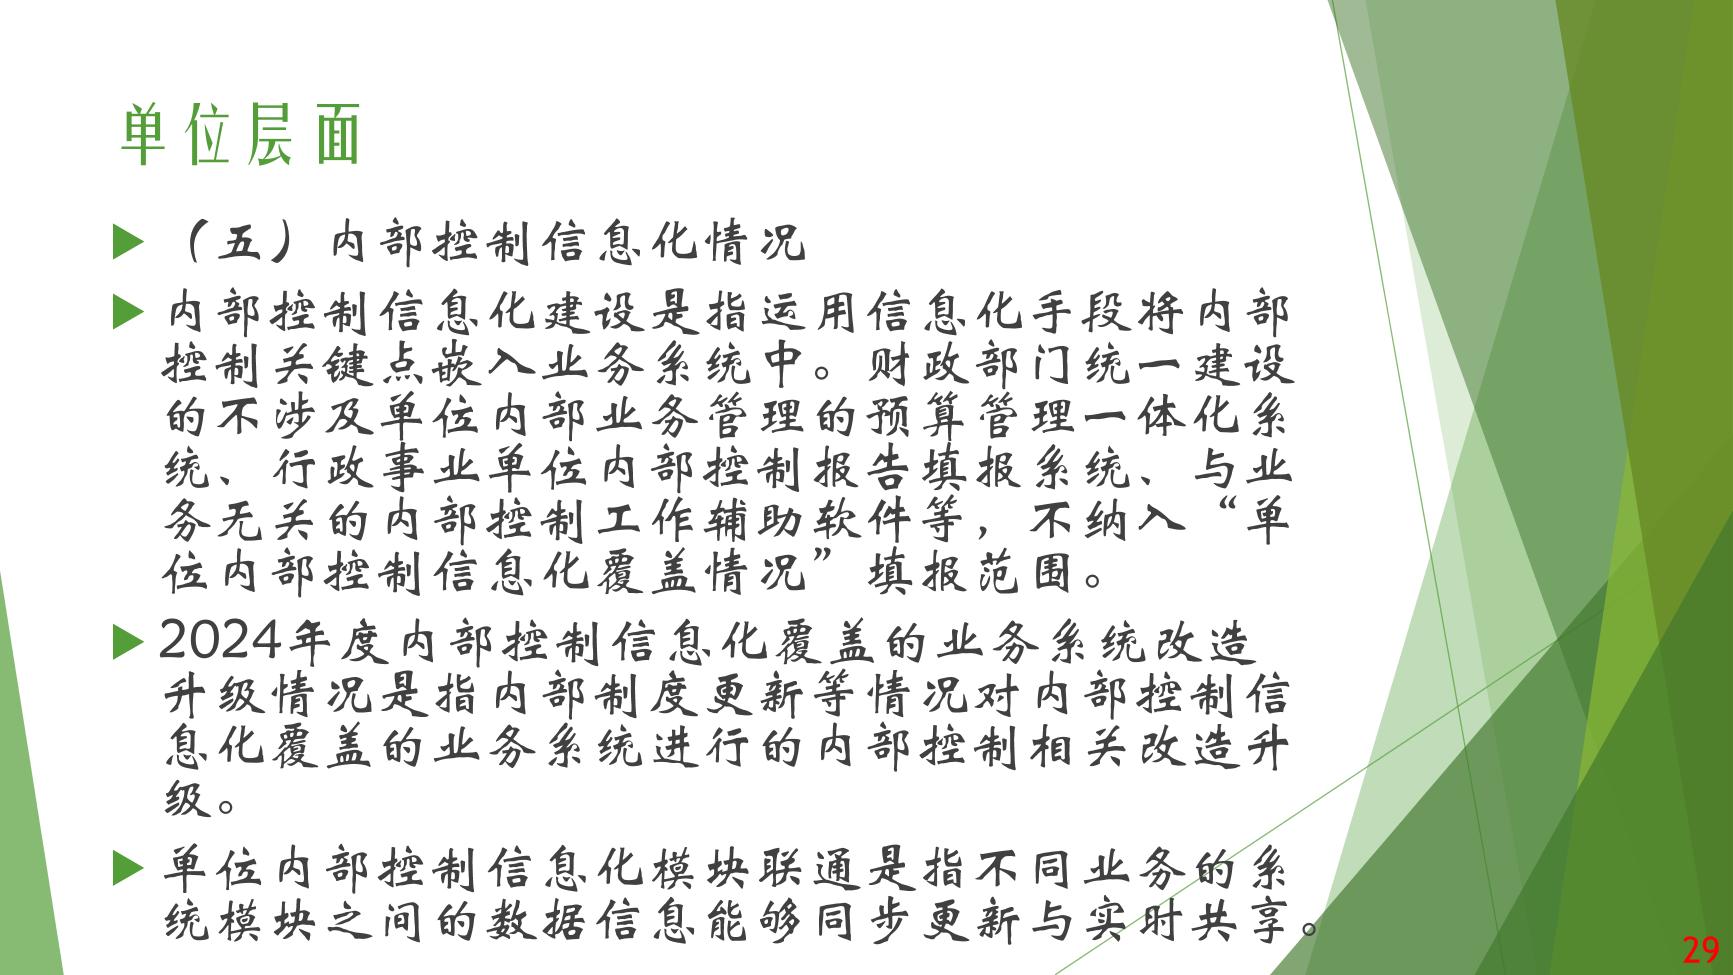 单位层面
（五）内部控制信息化情况
内部控制信息化建设是指运用信息化手段将内部
控制关键点嵌入业务系统中。财政部门统一建设
的不涉及单位内部业务管理的预算管理一体化系
统、行政事业单位内部控制报告填报系统、与业
务无关的内部控制工作辅助软件等，不纳入“单
位内部控制信息化覆盖情况”填报范围。
2024年度内部控制信息化覆盖的业务系统改造
升级情况是指内部制度更新等情况对内部控制信
息化覆盖的业务系统进行的内部控制相关改造升
级。
单位内部控制信息化模块联通是指不同业务的系
统模块之间的数据信息能够同步更新与实时共享。
29